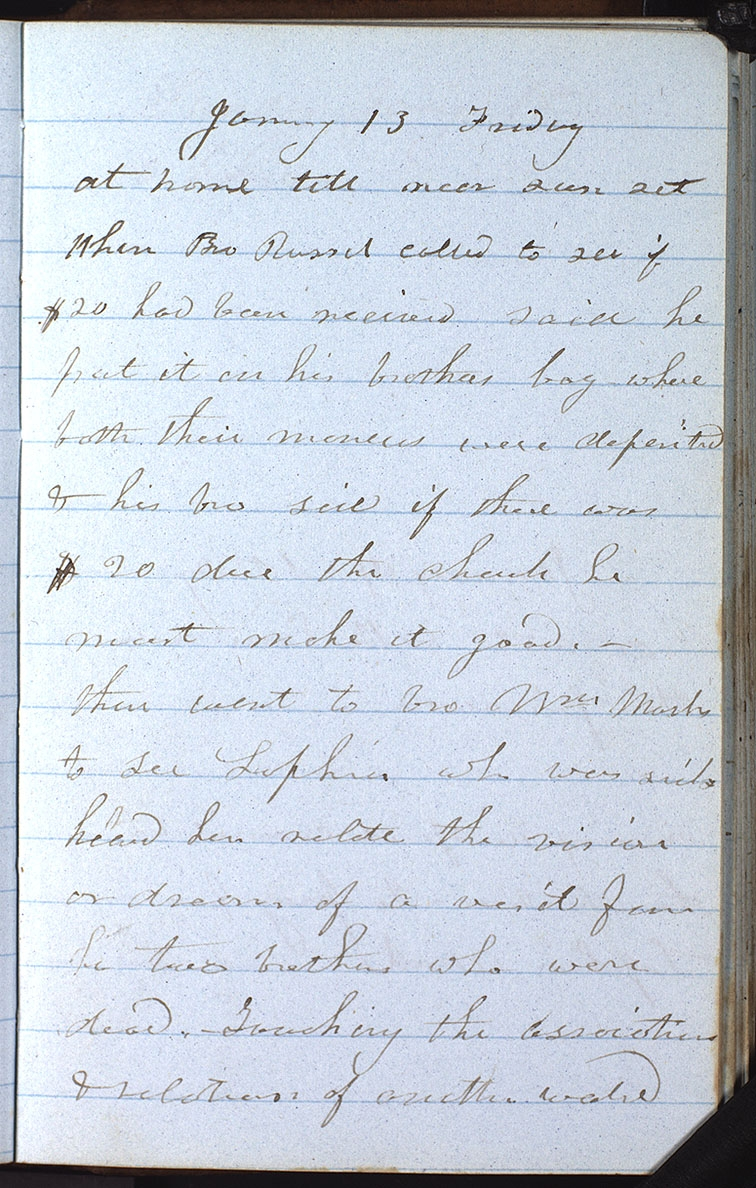 January 13 Friday
at home till near sun set
When Bro Russel called to see if
$20 had been received said he
put it in his brothers bag where
both their moneies were deposited
& his bro said if there was
$20 due the church he
must make it good. -
then went to bro Wm Marks
to see Sophia who was sick
heard her relate the vision
or dream of a visit from
her two brothers who were
dead. - Touching the association
& relations of another world